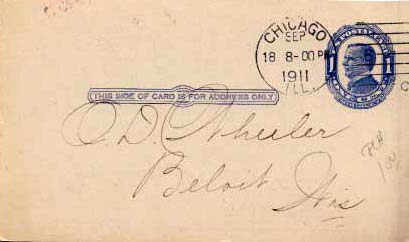 CHICAGO
SEP
18 8-00 P
1911
ILL.
U.S. POSTAL CARD
1 1
THIS SIDE OF CARD IS FOR ADDRESS ONLY
O.D. Wheeler
Beloit Wis